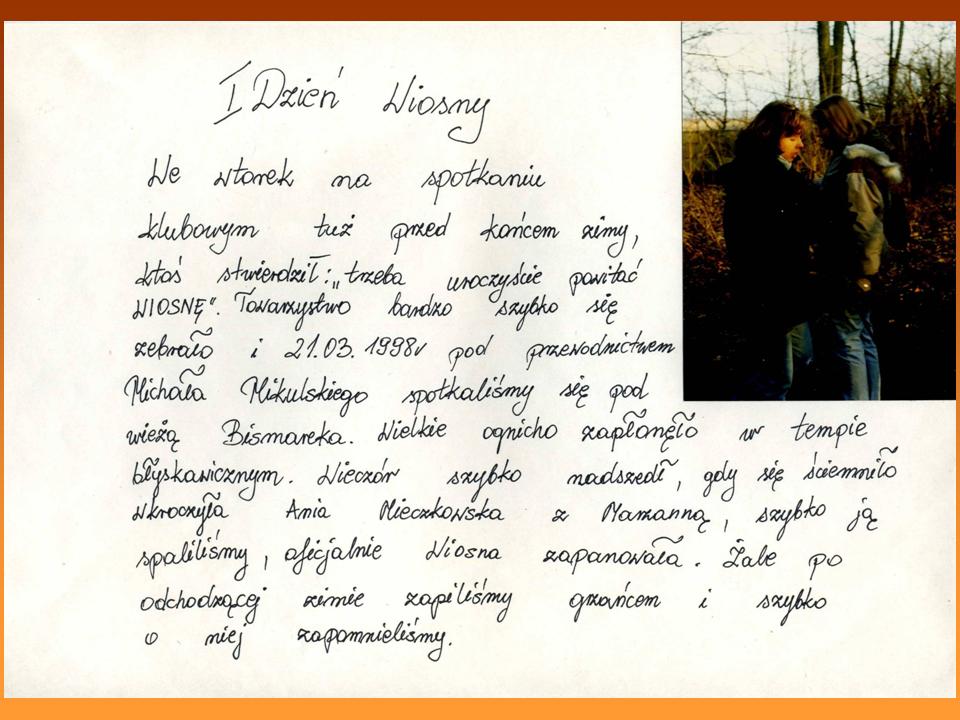 I Dzień Wiosny
We wtorek na spotkaniu
klubowym tuż przed końcem zimy,
ktoś stwierdził: „trzeba uroczyście powitać
WIOSNĘ". Towarzystwo bardzo szybko się
zebrało i 21.03.1998r pod przewodnictwem
Michała Mikulskiego spotkaliśmy się pod
wieżą Bismarcka. Wielkie ognicho zapłanęło w tempie
błyskawicznym. Wieczór szybko nadszedł, gdy się ściemniło
wkroczyła Ania Mieczkowska z Marzanną, szybko ją
spaliliśmy, oficjalnie Wiosna zapanowała. Żale po
odchodzącej zimie zapiliśmy grzańcem i szybko
o niej zapomnieliśmy.